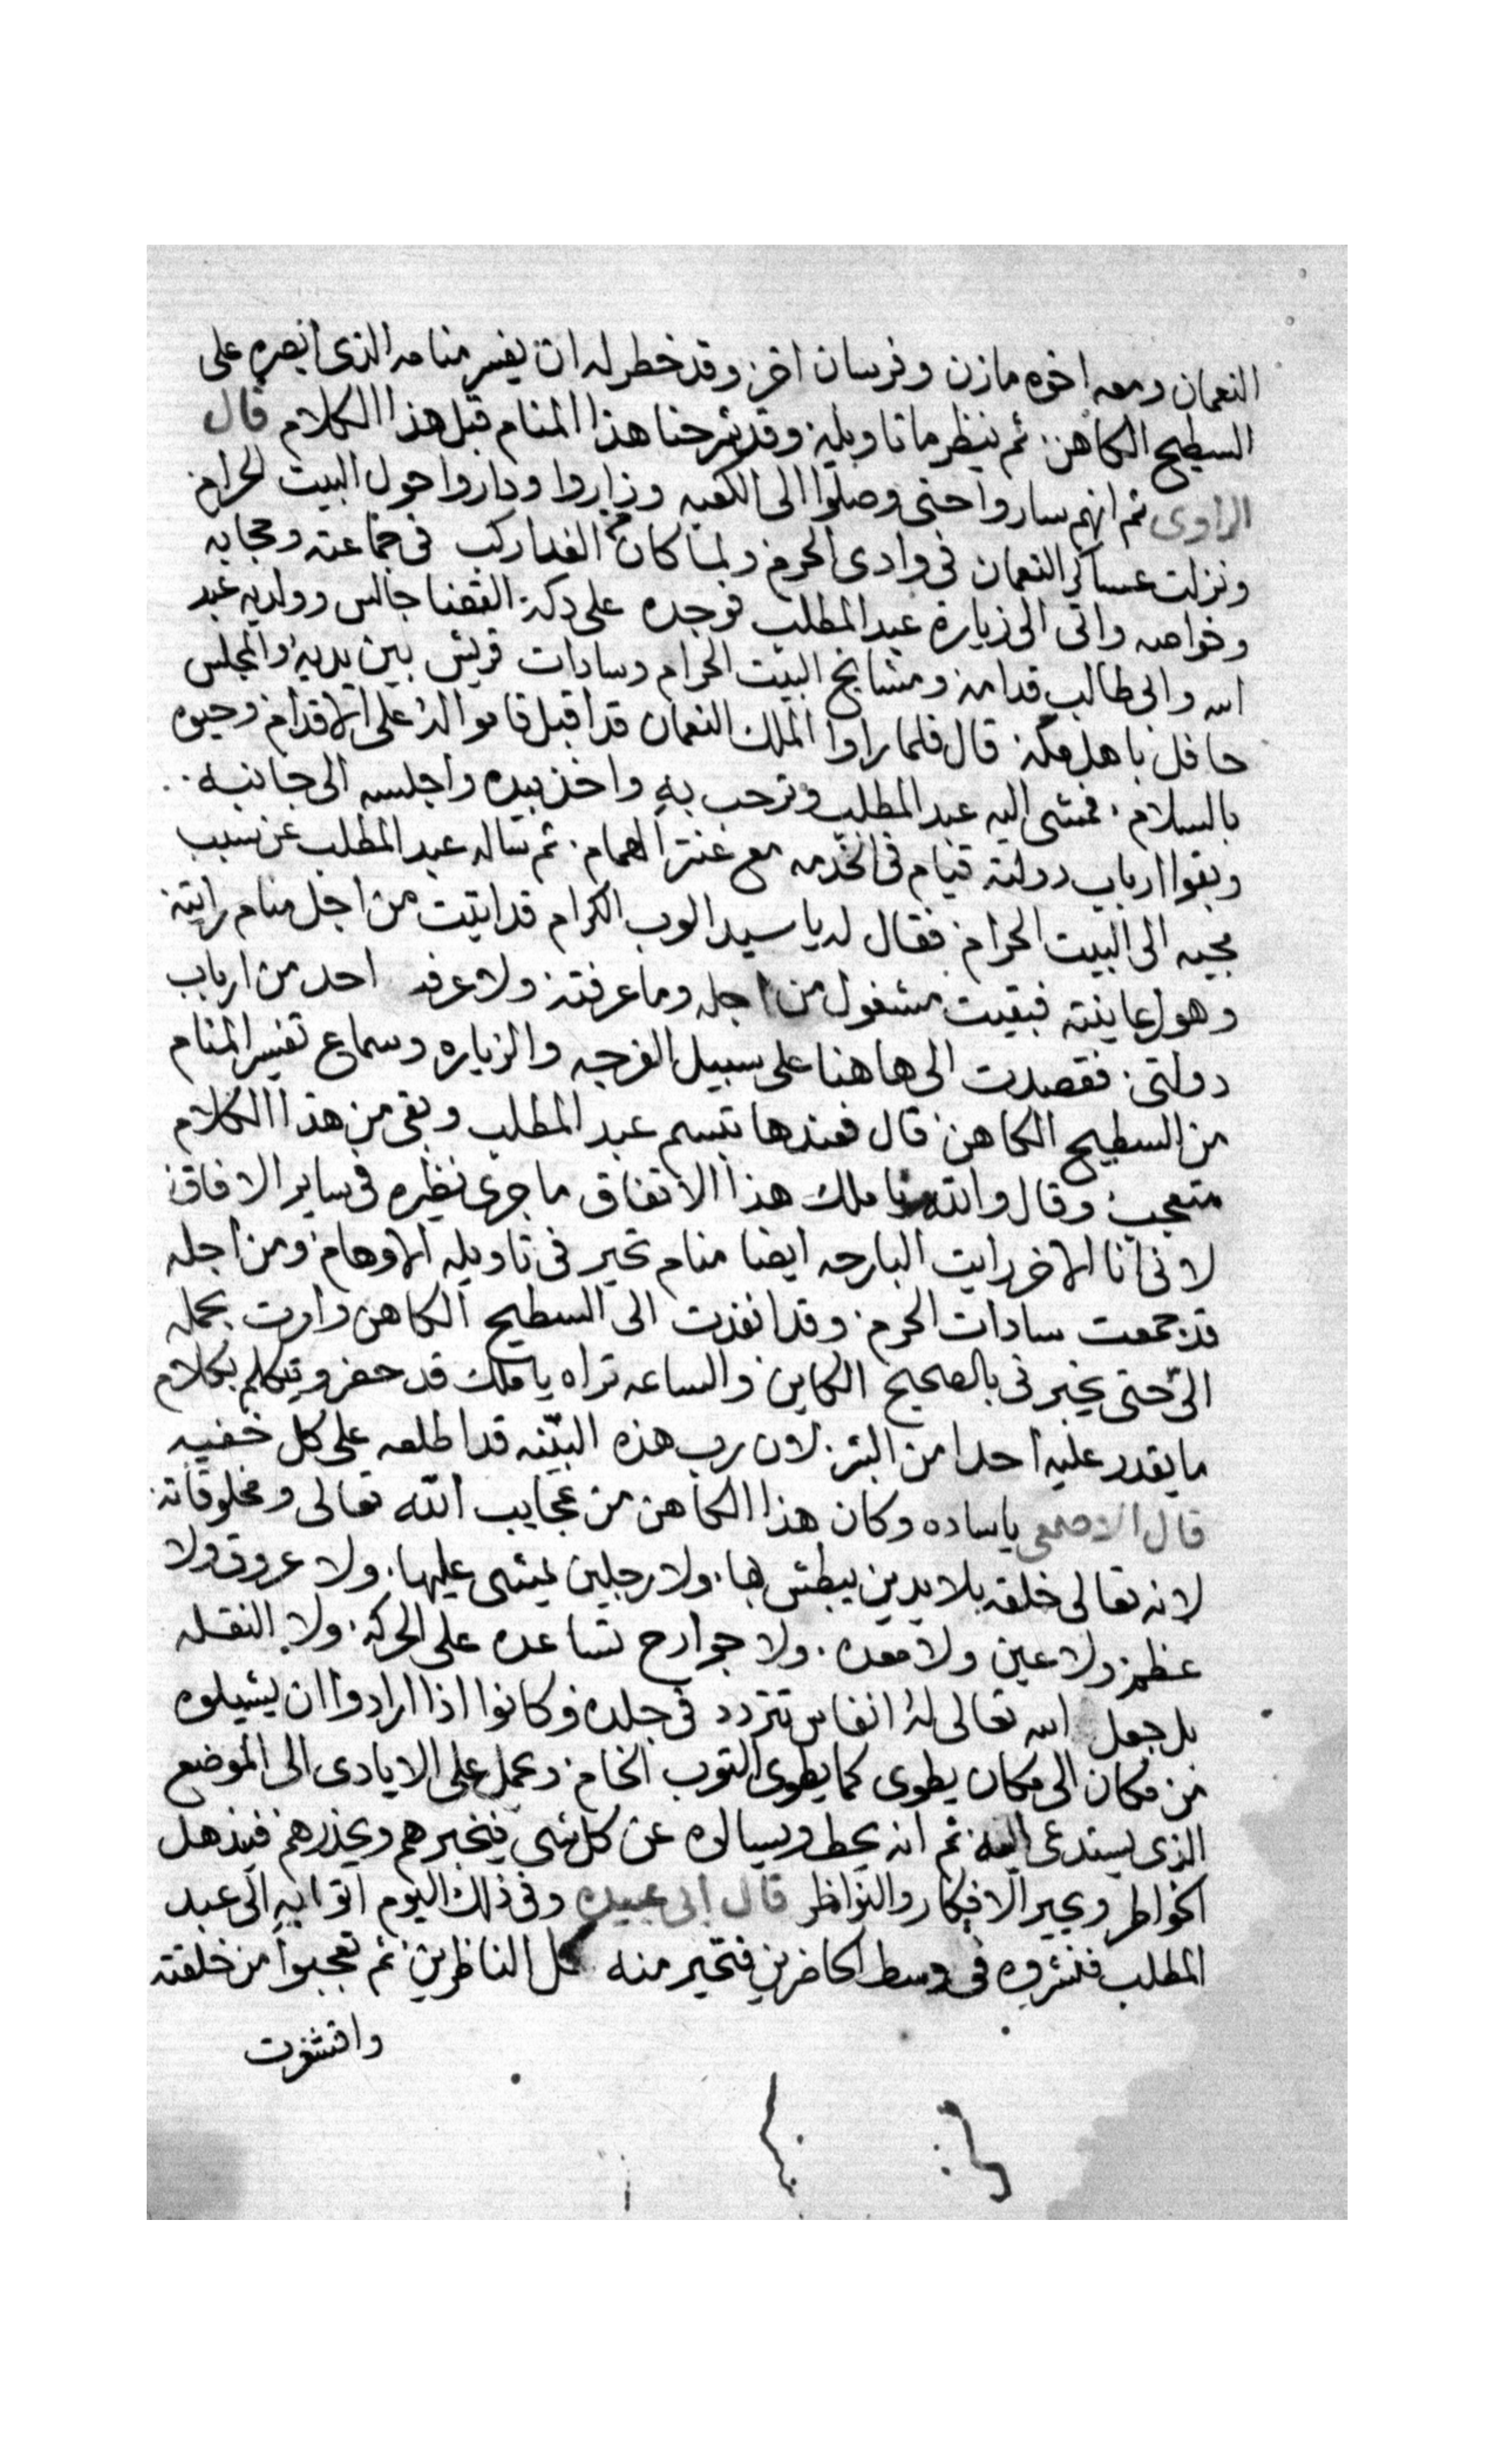 النعمان ومعه اخوه مازن وفرسان اخر وقد خطر له ان يفسر منامه الذى ابصره على
السطيح الكاهن ثم ينظر ما تاويله وقد شرحنا هذا المنام قبل هذا الكلام قال
الراوى ثم انهم ساروا حتى وصلوا الى الكعبه وزاروا وداروا حول البيت الحرام
ونزلت عساكر النعمان فى وادى الحرم ولما كان من الغد اركب فى جماعته وحجابه
وخواصه واتى الى زيارة عبد المطلب فوجده على دكة القضا جالس وولديه عبد
الله وابى طالب قدامه ومشايخ البيت الحرام وسادات قريش بين يديه والمجلس
حافل باهل مكه قال فلما راوا الملك النعمان قد اقبل قاموا له على الاقدام وحيوه
بالسلام فمشى اليه عبد المطلب وترحب به واخذ بيده واجلسه الى جانبه
وبقوا ارباب دولته قيام فى الخدمه مع عنتر الهمام ثم ساله عبد المطلب عن سبب
مجيه الى البيت الحرام فقال له يا سيد العرب الكرام قد اتيت من اجل منام رايته
وهول عاينته فبقيت مشغول من اجله وما عرفته ولا عرفه احد من ارباب
دولتى فقصدت الى هاهنا على سبيل الفرجه والزياره وسماع تفسير المنام
من السطيح الكاهن قال فعندها تبسم عبد المطلب وبقى من هذا الكلام
متعجب وقال والله يا ملك هذا الاتفاق ما جرى نظيره فى ساير الافاق
لانى انا الاخر رايت البارحه ايضا منام تحير فى تاويله الاوهام ومن اجله
قد جمعت سادات الحرم وقد انفذت الى السطيح الكاهن وامرت بحمله
الىّ حتى يخبرنى بالصحيح الكاين والساعه تراه يا ملك قد حضر ويتكلم بكلام
ما يقدر عليه احدا من البشر لان رب هذه البنيّه قد اطلعه على كل خفيه
قال الاصمعى ياساده وكان هذا الكاهن من عجايب الله تعالى ومخلوقاته
لانه تعالى خلقه بلا يدين يبطش بها ولا رجلين يمشى عليها ولا عروق ولا
عظم ولا عين ولا معده ولا جوارح تساعده على الحركه ولا النقله
بل جعل الله تعالى له انفاس تتردد فى جلده وكانوا اذا ارادوا ان يشيلوه
من مكان الى مكان يطوى كما يطوى التوب الخام ويحمل على الايادى الى الموضع
الذى يستدعى اليه ثم انه يحط ويسالوه عن كل شى فيخبرهم ويحذرهم فيذهل
الخواطر ويحير الافكار والنواظر قال ابى عبيده وفى ذلك اليوم اتوا به الى عبد
المطلب فنشروه فى وسط الحاضرين فتحير منه كل الناظرين ثم تعجبوا من خلقته
واقشعرت